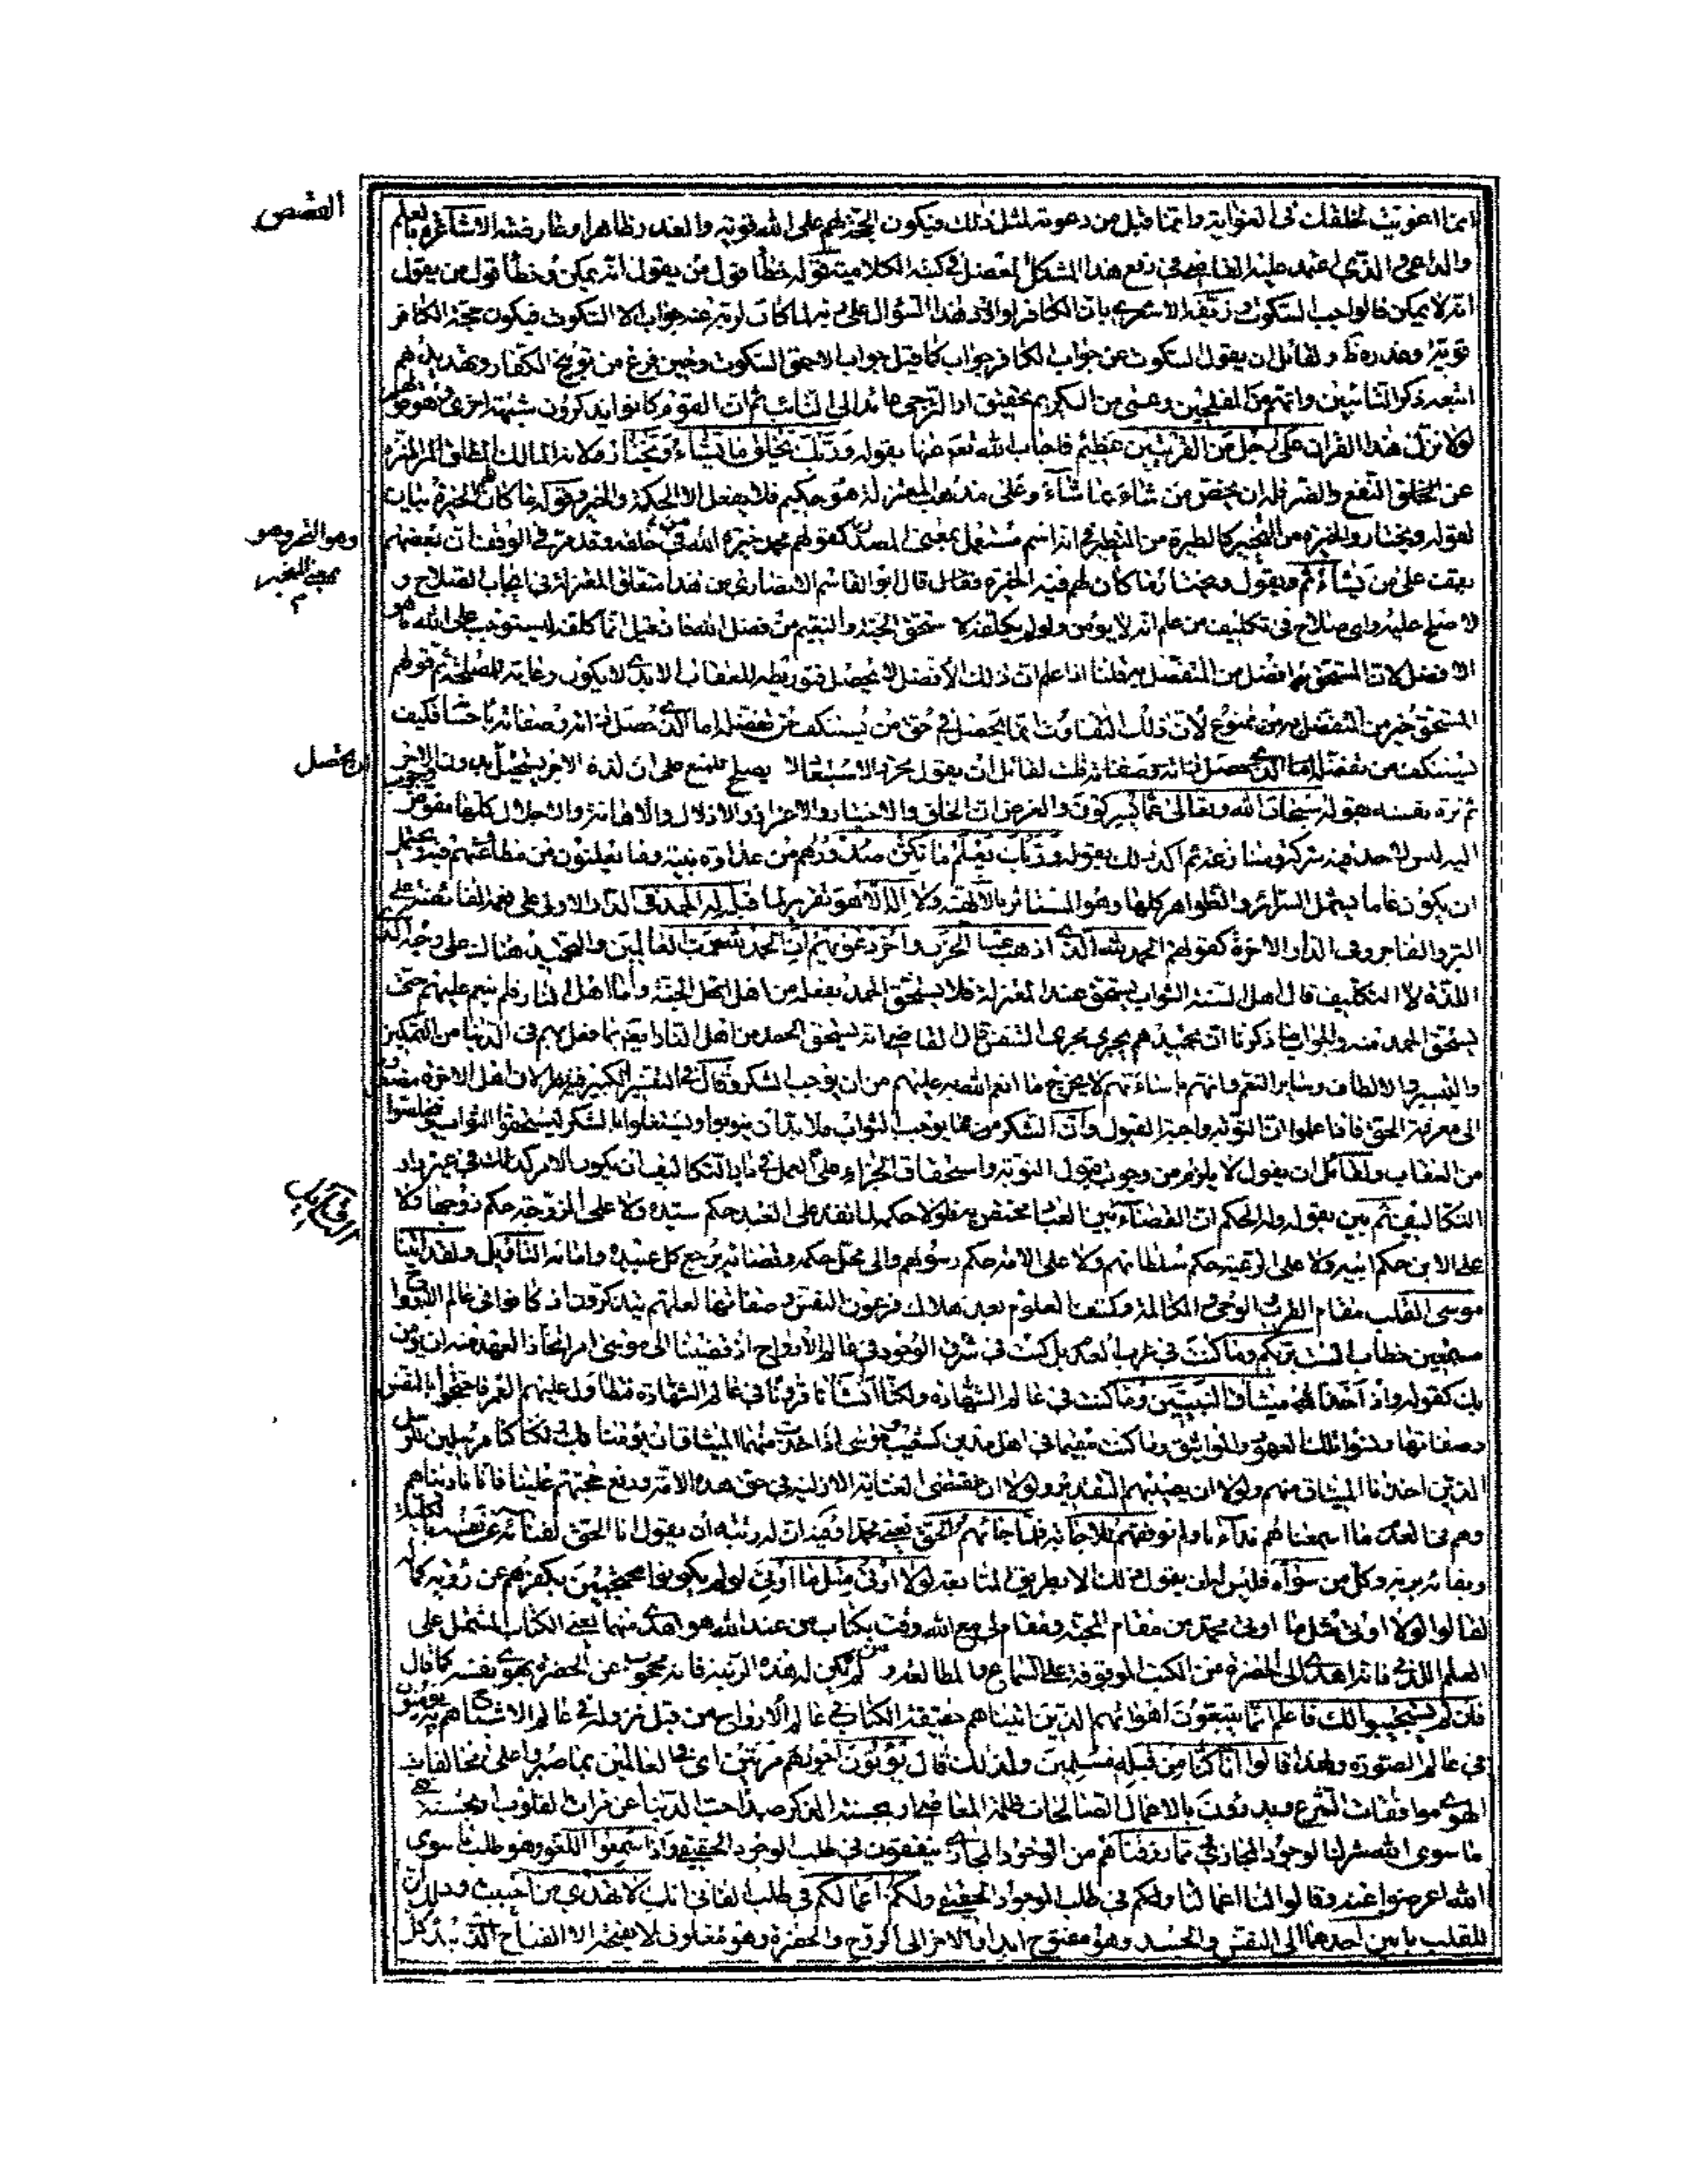 القصص
والداعي والذي اعتمد عليه القاضي في دفع هذا المشكل المفصل في كتبه الكلامية قوله خطأ قول من يقول انه يمكن وخطأ قول من يقول
انه لا يمكن فالواجب السكوت وزيفه الاشعري بان الكافر لو اورد هذا السؤال على ربه لما كان لربه عنه جواب الا السكوت فيكون حجة الكافر
قوية وعذره ظ ولقائل ان يقول السكوت عن جواب الكافر جواب كما قيل جواب الاحمق السكوت وحين فرغ من توبيخ الكفار وتهديدهم
اتبعه ذكر التائبين وانهم من المفلحين وعسى من الكريم تحقيق او الترجي عائد الى التائب ثم ان القوم كانوا يذكرون شبهة اخرى وهو قولهم
لولا نزل هذا القران على رجل من القريتين عظيم فاجاب الله تعم عنها بقوله وربك يخلق ما يشاء ويختار ولانه المالك المطلق المنزه
عن النفع والضر فله ان يخص من شاء بما شاء وعلى مذهب المعتزلة هو حكيم فلا يفعل الا الحكمة والخير وقوله ما كان لهم الخيرة بيان
لقوله ويختار والخيرة من التخير كالطيرة من التطير في انه اسم مستعمل بمعنى المصدر كقولهم محمد خيرة الله من خلقه وقد مر في الوقف ان بعضهم
وهو التخير وهو
بمعنى المتخير
يقف على من يشاء ثم يقول ويختار ما كان لهم فيه الخيرة فقال قال ابو القاسم الانصاري من هذا متعلق المعتزلة في ايجاب الصلاح و
الاصلح عليه واي صلاح في تكليف من علم انه لا يؤمن ولو لم يكلفه لاستحق الجنة والنعيم من فضل الله فان قيل انما كلفه ليستوجب على الله ما هو
الافضل لان المستحق به افضل من المتفضل به قلنا اذا علم ان ذلك الافضل لا يحصل فتوريطه للعقاب الابدي لا يكون رعاية للمصلحة ثم قولهم
المستحق خير من المتفضل به ممنوع لان ذلك التفاوت انما يحصل في حق من يستنكف عن تفضله اما الذي حصل بذاته وصفاته باحسانه فكيف
يستنكف من تفضله قلت لقائل ان يقول مجرد الاستبعاد لا يصلح للمنع على ان لذة الاجر يستحيل بدون الاجر
ان يحصل
ثم نزه نفسه بقوله سبحان الله وتعالى عما يشركون والغرض ان الخلق والاختيار والاعزاز والاذلال والاهانة والاجلال كلها مفوض
اليه ليس لاحد فيه شركة ومنازعة ثم اكد ذلك بقوله وربك يعلم ما تكن صدورهم من عداوة نبيه وما يعلنون من مطاعنهم فيه ويحتمل
ان يكون عاما يشمل السرائر والظواهر كلها وهو المستاثر بالالهية ولا اله الا هو تقرير لما قبله له الحمد في الدار الاولى على نعمه الفائضة على
البر والفاجر وفي الدار الاخرة كقولهم الحمد لله الذي اذهب عنا الحزن واخر دعويهم ان الحمد لله رب العالمين والتحميد هنالك على وجه
اللذة لا التكليف قال اهل السنة الثواب يستحق عند المعتزلة فلا يستحق الحمد بفعله من اهل الجنة واما اهل النار فلم ينعم عليهم حتى
يستحق الحمد منه والجواب ما ذكرنا ان تحميدهم يجري مجرى التنفس قال القاضي انه يستحق الحمد من اهل النار ايضا بما فعل بهم في الدنيا من التمكين
والتيسير والالطاف وسائر النعم وانهم باساءتهم لا يخرج ما انعم الله به عليهم من ان يوجب الشكر وقال في التفسير الكبير فيه نظر لان اهل الاخرة مضطرون
الى معرفة الحق فاذا علموا ان التوبة واجبة القبول وان الشكر مما يوجب الثواب فلا بد ان يتوبوا ويشتغلوا بالشكر ليستحقوا الثواب ويتخلصوا
من العقاب ولقائل ان يقول لا يلزم من وجوب قبول التوبة واستحقاق الجزاء على العمل في دار التكاليف ان يكون الامر كذلك في غير دار
التكاليف ثم بين بقوله وله الحكم ان القضاء بين العباد مختص به فلولا حكمه لما نفذ على العبد حكم سيده ولا على الزوجة حكم زوجها ولا
على الابن حكم ابيه ولا على الرعية حكم سلطانهم ولا على الامة حكم رسولهم والى محل حكمه وقضائه يرجع كل عبيده وامائه التاويل ولقد اتينا
التأويل
موسى القلب مقام القرب الوحي والمكالمة وكشف العلوم بعد هلاك فرعون النفس وصفاتها لعلهم يتذكرون اذ كانوا في عالم الارواح
مستمعين خطاب الست بربكم وما كنت في غرب العدم بل كنت في شرق الوجود في عالم الارواح اذ قضينا الى موسى امر اتخاذ العهد منه ان يؤمن
بك كقوله واذ اخذ الله ميثاق النبيين وما كنت في عالم الشهادة ولكنا انشأنا قرونا في عالم الشهادة فتطاول عليهم العمر فاحتجوا بالنفس
وصفاتها ونسوا تلك العهود والمواثيق وما كنت مقيما في اهل مدين كشعيب وموسى اذ اخذت منهما الميثاق ان يؤمنا بك لكنا كنا مرسلين للرسل
الذين اخذنا الميثاق منهم ولولا ان يصيبهم التقدير ولولا ان مقتضى العناية الازلية في حق هذه الامة ودفع حجتهم علينا فانا ناديناهم
وهم في العدم ما اسمعناهم نداءنا ولم نوفقهم للاجابة فلما جاءهم الحق يعني محمد
وبقائه بربه وكل من سواه فليس له ان يقول ذلك الا بطريق المتابعة لولا اوتي مثل ما اوتي موسى
لقالوا لولا اوتي مثل ما اوتي محمد من مقام المحبة ومقام لي مع الله وقت بكتاب من عند الله هو اهدى منهما يعني الكتاب المشتمل على
العلم اللدني فانه اهدى الى الحضرة من الكتب الموقوفة على السماع والمطالعة و من لم يكن له هذه الرتبة فانه محجوب عن الحضرة بهوى نفسه كما قال
فان لم يستجيبوا لك فاعلم انما يتبعون اهوائهم الذين اتيناهم حقيقة الكتاب في عالم الارواح من قبل نزوله في عالم الاشباح هم به يؤمنون
في عالم الصورة ولهذا قالوا انا كنا من قبله مسلمين ولذلك قال يؤتون اجرهم مرتين اي في العالمين بما صبروا على مخالفات
الهوى وموافقات الشرع ويدرؤن بالاعمال الصالحات ظلمة المعاصي او بحسنة الذكر صداء حب الدنيا عن مرات القلوب او بحسنة
ما سوى الله شر لنا لوجود المجازي مما رزقناهم من الوجود المجازي ينفقون في طلب الوجود الحقيقي واذا سمعوا اللغو وهو طلب ما سوى
الله اعرضوا عنه وقالوا لنا اعمالنا ولكم في طلب الوجود الحقيقي ولكم اعمالكم في طلب الفاني انك لا تهدي من احببت وذلك ان
للقلب بابين احدهما الى النفس والجسد وهو مفتوح ابدا والاخر الى الروح والحضرة وهو مغلوق لا يفتحه الا الفتاح الذي بيده كل